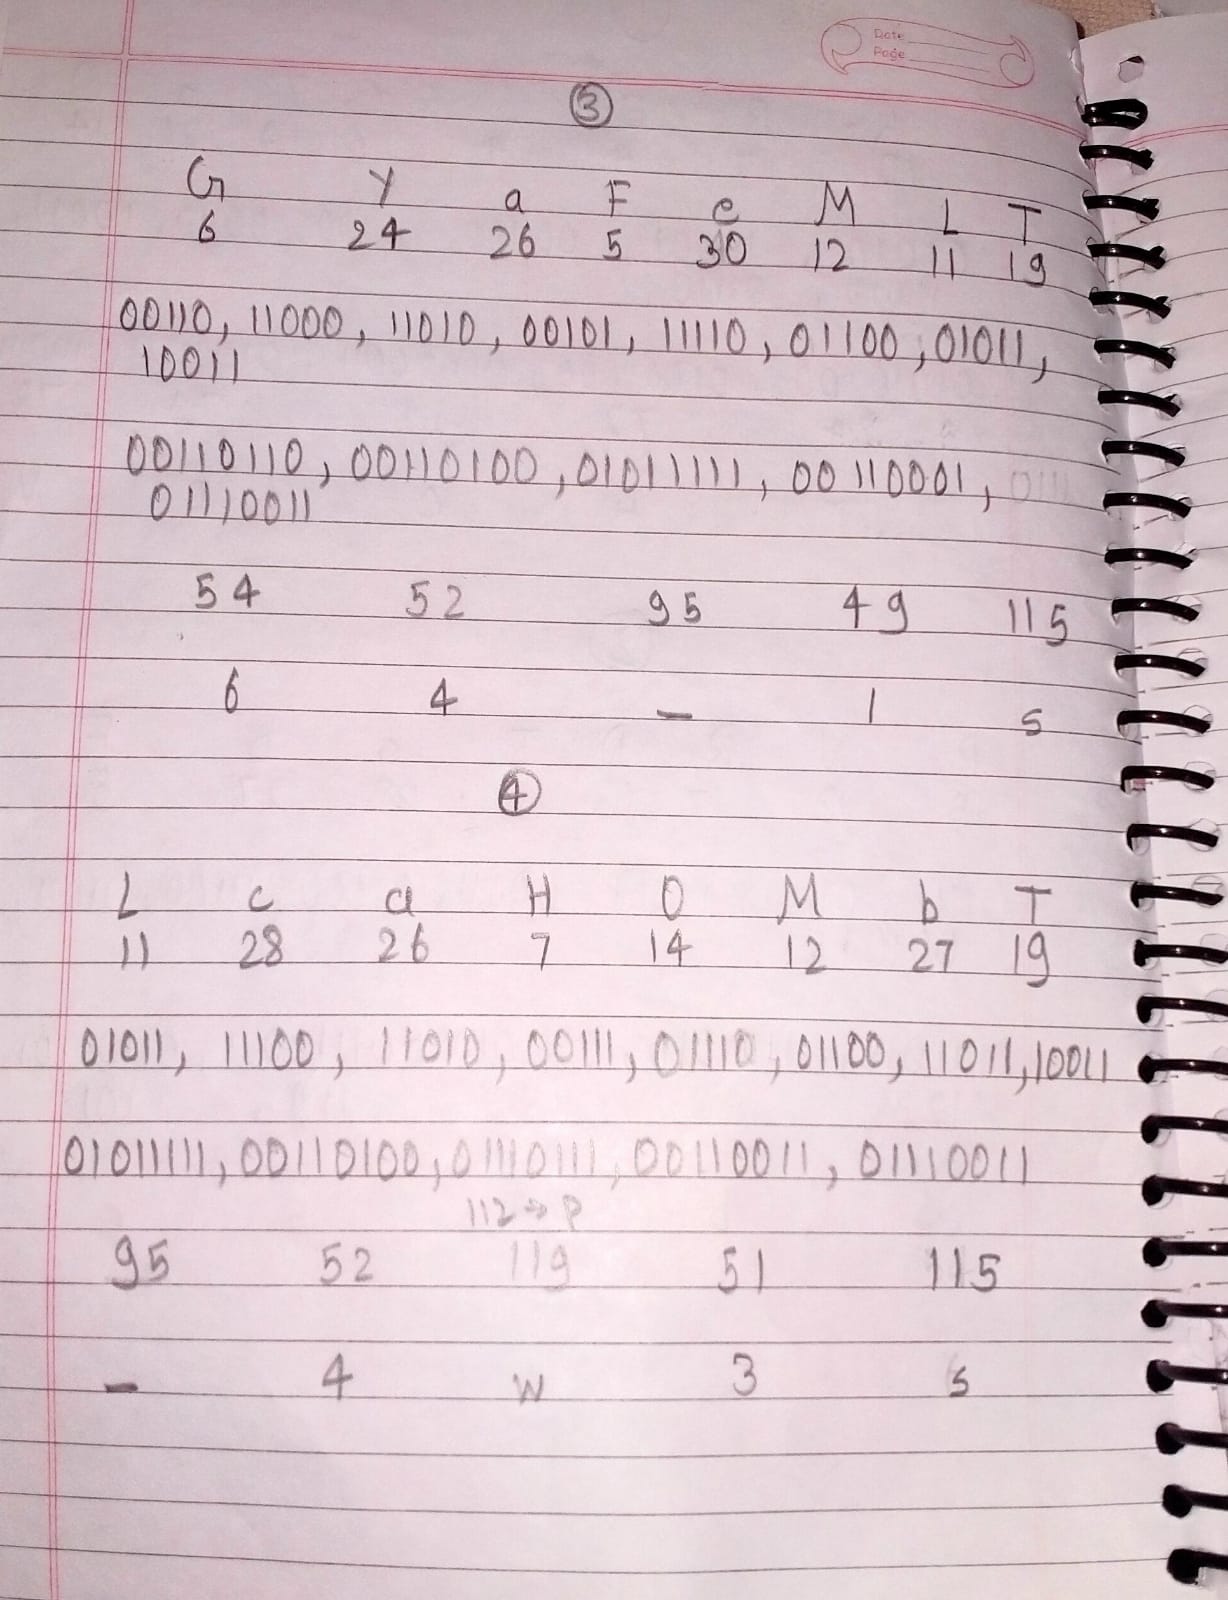 Date
Page
3
G Y a F e M L T
6 24 26 5 30 12 11 19
00110, 11000, 11010, 00101, 11110, 01100, 01011,
10011
00110110, 00110100, 01011111, 00110001,
01110011
54 52 95 49 115
6 4 _ 1 s
4
L c a H O M b T
11 28 26 7 14 12 27 19
01011, 11100, 11010, 00111, 01110, 01100, 11011, 10011
01011111, 00110100, 01110111, 00110011, 01110011
112 → p
95 52 119 51 115
_ 4 w 3 s